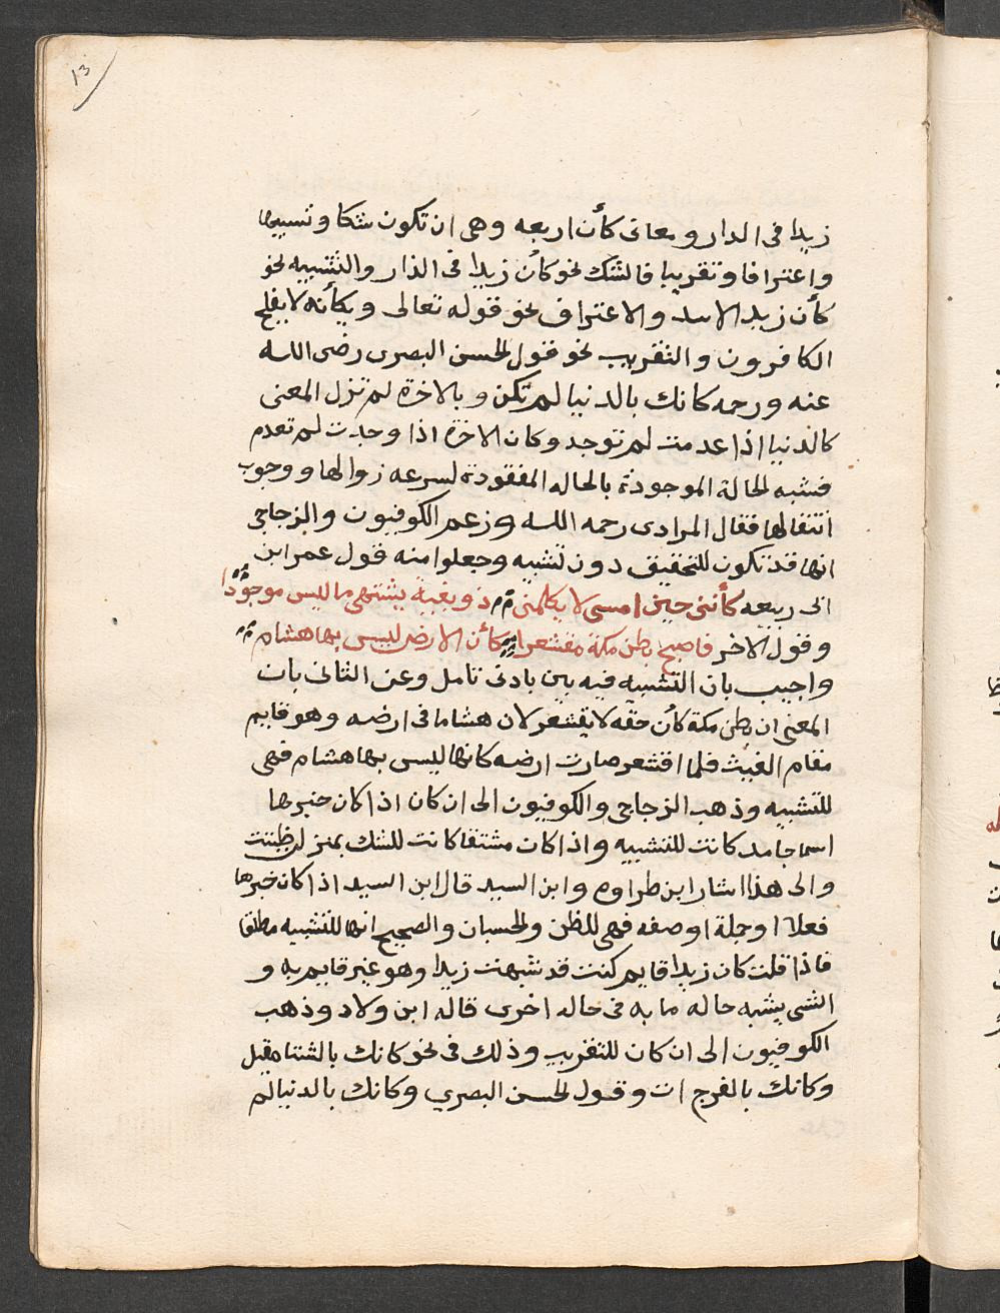 ١٣
زيدا في الدار ومعاني كأن اربعه وهي ان تكون شكا وتشبيها
واعترافا وتقريبا فالشك نحو كأن زيدا في الدار والتشبيه نحو
كأن زيد الاسد والاعتراف نحو قوله تعالى ويكأنه لا يفلح
الكافرون والتقريب نحو قول الحسن البصرى رضى الله
عنه ورحمه كانك بالدنيا لم تكن وبالاخرة لم تزل المعنى
كالدنيا اذا عدمت لم توجد وكان الاخرة اذا وجدت لم تعدم
فشبه الحالة الموجودة بالحاله المفقودة لسرعه زوالها ووجوب
انتقالها فقال المرادى رحمه الله وزعم الكوفيون والزجاجى
انها قد تكون للتحقيق دون تشبيه وجعلوا منه قول عمر ابن
ابى ربيعه كأننى حين امسى لا يكلمنى ذو بغية يشتهى ما ليس موجودا
وقول الاخر فاصبح بطن مكة مقشعرا كأن الارض ليس بها هشام
واجيب بان التشبيه فيه بين بادنى تامل وعن الثانى بان
المعنى ان بطن مكة كأن حقه لا يقشعر لان هشاما فى ارضه وهو قايم
مقام الغيث فلما اقشعر صارت ارضه كانها ليس بها هشام فهى
للتشبيه وذهب الزجاجى والكوفيون الى ان كان اذا كان خبرها
اسما جامد كانت للتشبيه واذا كان مشتقا كانت للشك بمنزلة ظننت
والى هذا اشار ابن طراوه وابن السيد قال ابن السيد اذا كان خبرها
فعلا او جلة اوصفه فهى للظن والحسبان والصحيح انها للتشبيه مطلقا
فاذا قلت كان زيدا قايم كنت قد شبهت زيدا وهو غير قايم به و
الشى يشبه حاله ما به فى حاله اخرى قاله ابن ولاد وذهب
الكوفيون الى ان كان للتقريب وذلك فى نحو كانك بالشتا مقبل
وكانك بالفرج ات وقول الحسن البصري وكانك بالدنيا لم